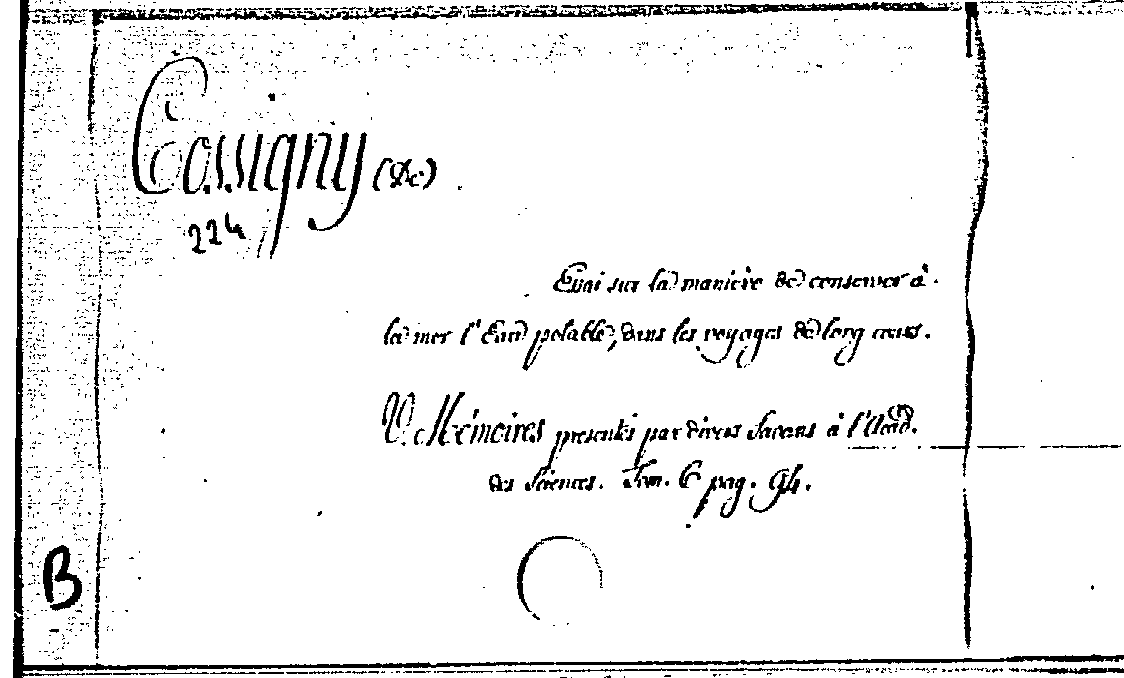 Cossigny (De)
224
Essai sur la maniere de conserver à
la mer l'Eau potable, dans les voyages de long cours.
V. Mémoires presentés par divers Savans à l'Acad.
des Sciences. Tom. 6 pag. 94.
B